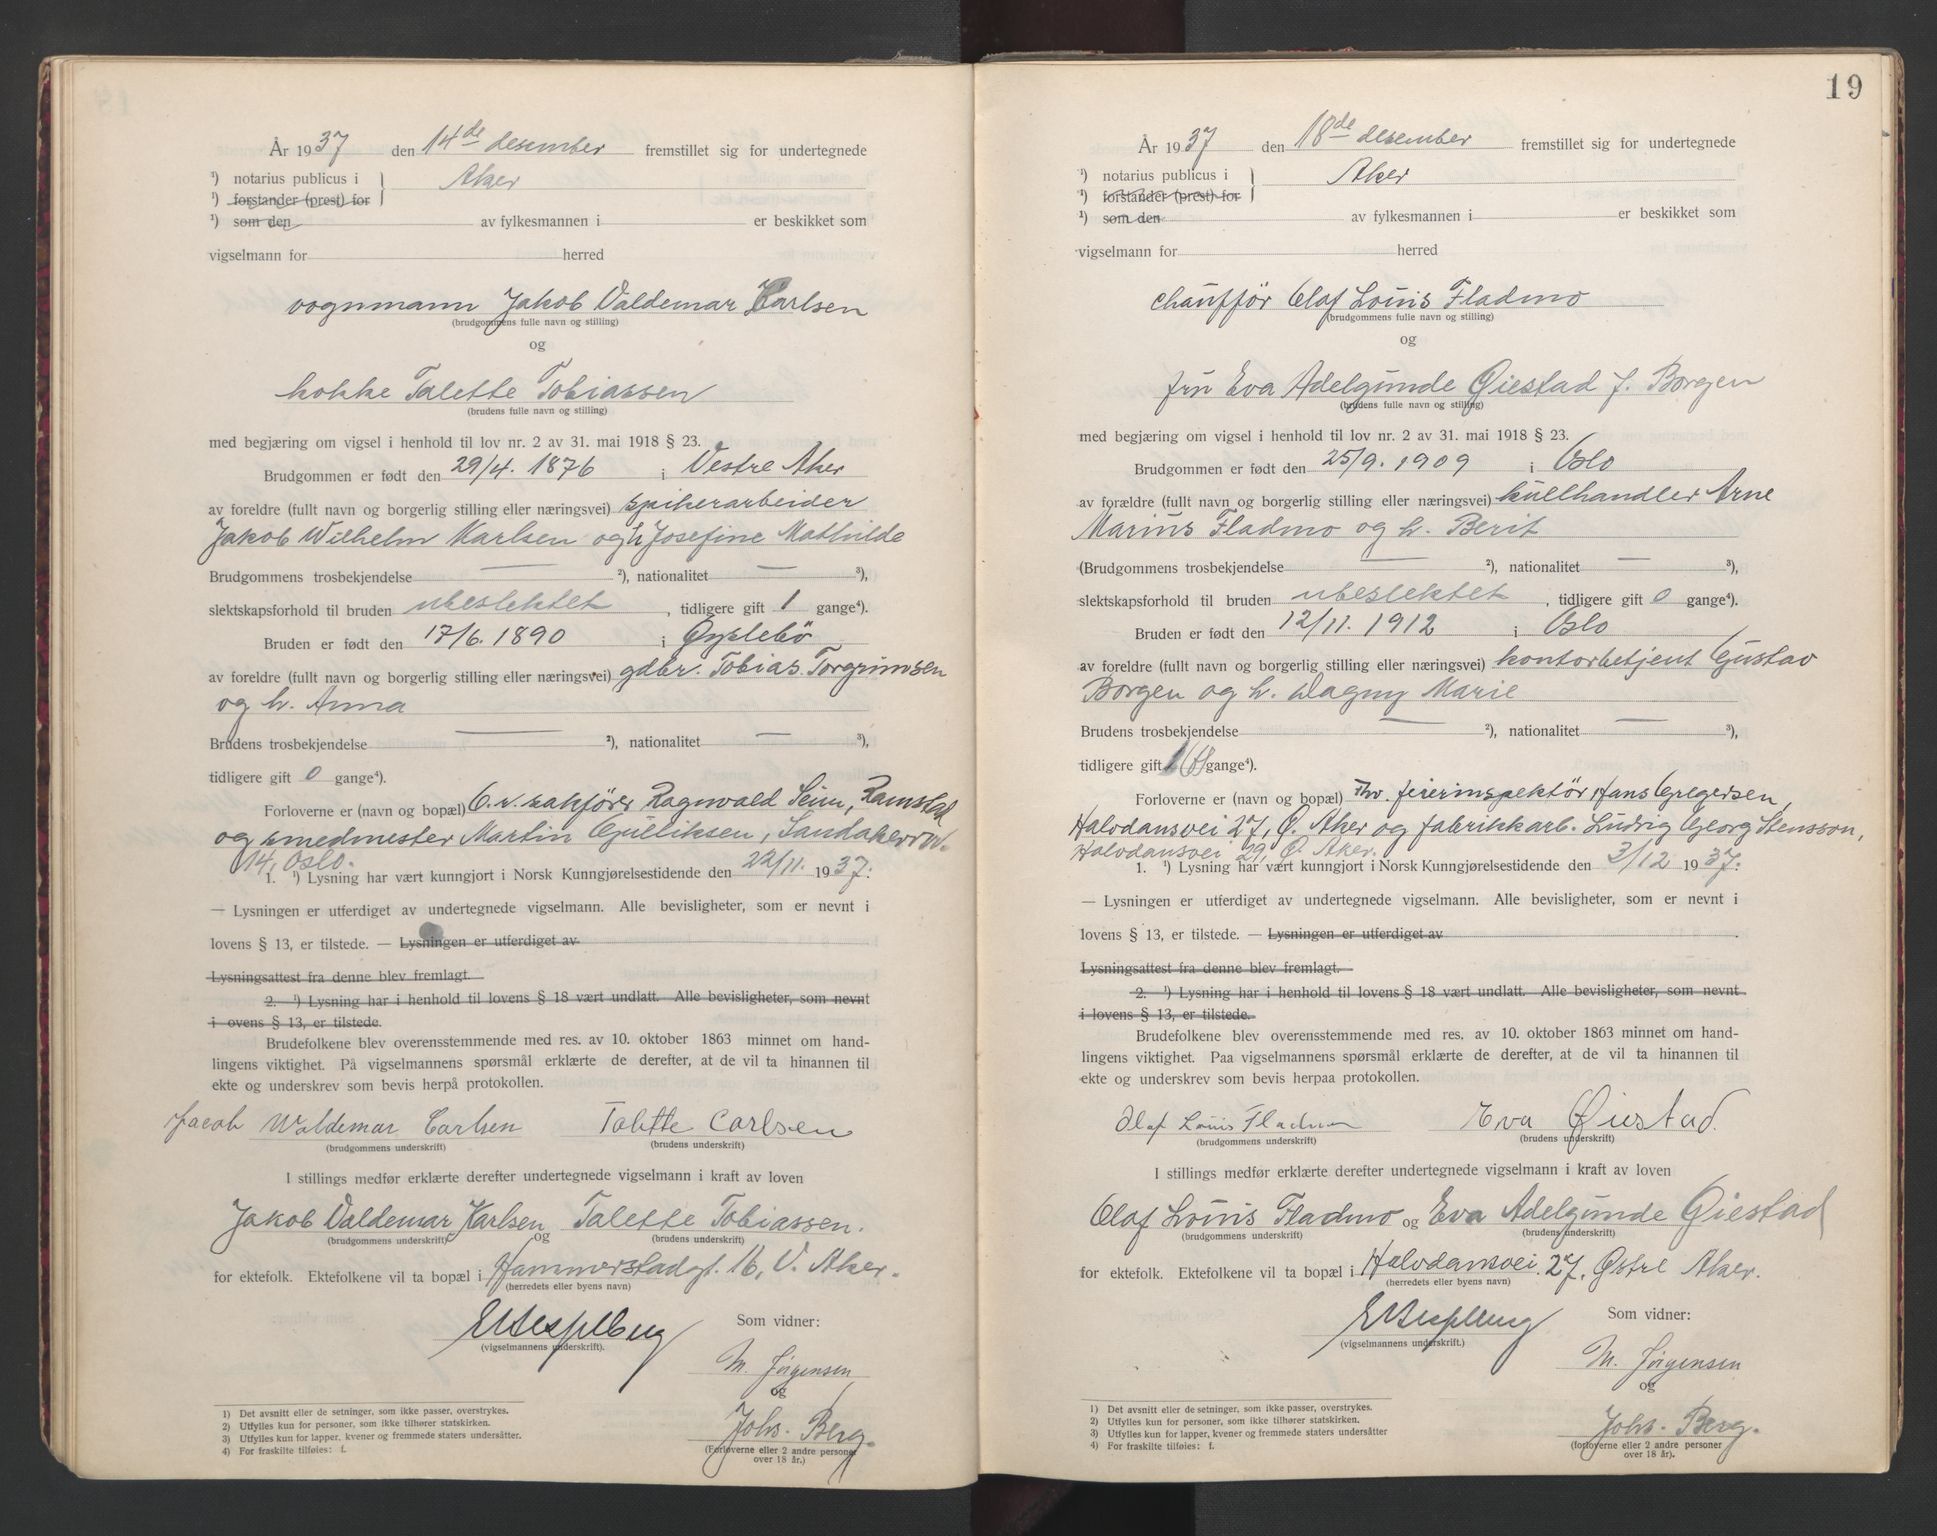 År 1937 den 14de desember fremstillet sig for undertegnede
¹) notarius publicus i Aker
¹) forstander (prest) for
¹) som den av fylkesmannen i er beskikket som
vigselmann for herred
vognmann Jakob Valdemar Karlsen
(brudgommens fulle navn og stilling)
og
kokke Talette Tobiassen
(brudens fulle navn og stilling)
med begjæring om vigsel i henhold til lov nr. 2 av 31. mai 1918 § 23.
Brudgommen er født den 29/4. 1876 i Vestre Aker
av foreldre (fullt navn og borgerlig stilling eller næringsvei) spikerarbeider
Jakob Wilhelm Karlsen og h. Josefine Mathilde
Brudgommens trosbekjendelse — ²), nationalitet — ³),
slektskapsforhold til bruden ubeslektet, tidligere gift 1 gange⁴).
Bruden er født den 17/6. 1890 i Øyslebö
av foreldre (fullt navn og borgerlig stilling eller næringsvei) gdbr. Tobias Torgrimsen
og h. Anna
Brudens trosbekjendelse — ²), nationalitet — ³),
tidligere gift 0 gange⁴).
Forloverne er (navn og bopæl) O.r. sakförer Ragnvald Seim, Ramstad
og smedmester Martin Gulliksen, Sandakervn.
14, Oslo.
1. ¹) Lysning har vært kunngjort i Norsk Kunngjørelsestidende den 22/11. 1937:
— Lysningen er utferdiget av undertegnede vigselmann. Alle bevisligheter, som er nevnt i
lovens § 13, er tilstede. — Lysningen er utferdiget av
Lysningsattest fra denne blev fremlagt.
2. ¹) Lysning har i henhold til lovens § 18 vært undlatt. Alle bevisligheter, som nevnt
i ovens § 13, er tilstede.
Brudefolkene blev overensstemmende med res. av 10. oktober 1863 minnet om hand-
lingens viktighet. På vigselmannens spørsmål erklærte de derefter, at de vil ta hinannen til
ekte og underskrev som bevis herpå protokollen.
Jacob Waldemar Carlsen Talette Carlsen
(brudgommens underskrift) (brudens underskrift)
I stillings medfør erklærte derefter undertegnede vigselmann i kraft av loven
Jakob Valdemar Karlsen og Talette Tobiassen.
(brudgommens underskrift) (brudens underskrift)
for ektefolk. Ektefolkene vil ta bopæl i Hammerstadgt. 16, V. Aker.
(herredets eller byens navn)
(vigselmannens underskrift).
Som vidner:
M. Jörgensen
og
Johs. Berg.
(Forloverne eller 2 andre personer
over 18 år.)
1) Det avsnitt eller de setninger, som ikke passer, overstrykes.
2) Utfylles kun for personer, som ikke tilhører statskirken.
3) Utfylles kun for lapper, kvener og fremmede staters undersåtter.
4) For fraskilte tilføies: f.
19
År 1937 den 18de desember fremstillet sig for undertegnede
¹) notarius publicus i Aker
¹) forstander (prest) for
¹) som den av fylkesmannen i er beskikket som
vigselmann for herred
chaufför Olaf Louis Fladmo
(brudgommens fulle navn og stilling)
og
fru Eva Adelgunde Øiestad f. Borgen
(brudens fulle navn og stilling)
med begjæring om vigsel i henhold til lov nr. 2 av 31. mai 1918 § 23.
Brudgommen er født den 25/9. 1909 i Oslo
av forældre (fullt navn og borgerlig stilling eller næringsvei) kullhandler Arne
Marius Fladmo og h. Berit
(Brudgommens trosbekjendelse — ²), nationalitet — ³),
slektskapsforhold til bruden ubeslektet, tidligere gift 0 gange⁴).
Bruden er født den 12/11. 1912 i Oslo
av foreldre (fullt navn og borgerlig stilling eller næringsvei) kontorbetjent Gustav
Borgen og h. Dagny Marie
Brudens trosbekjendelse — ²), nationalitet — ³),
tidligere gift 1 (f) gange⁴).
Forloverne er (navn og bopæl) Fhv. feierinspektör Hans Gregersen,
Halvdansvei 27, Ø. Aker og fabrikkarb. Ludvig Georg Stensson,
Halvdansvei 29, Ø. Aker.
1. ¹) Lysning har vært kunngjort i Norsk Kunngjørelsestidende den 3/12 1937:
— Lysningen er utferdiget av undertegnede vigselmann. Alle bevisligheter, som er nevnt i
lovens § 13, er tilstede. — Lysningen er utferdiget av
Lysningsattest fra denne blev fremlagt.
2. ¹) Lysning har i henhold til lovens § 18 vært undlatt. Alle bevisligheter, som nevnt
i lovens § 13, er tilstede.
Brudefolkene blev overensstemmende med res. av 10. oktober 1863 minnet om hand-
lingens viktighet. Paa vigselmannens spørsmål erklærte de derefter, at de vil ta hinannen til
ekte og underskrev som bevis herpaa protokollen.
Olaf Louis Fladmo Eva Øiestad.
(brudgommens underskrift) (brudens underskrift)
I stillings medfør erklærte derefter undertegnede vigselmann i kraft av loven
Olaf Louis Fladmo og Eva Adelgunde Øiestad
(brudgommens underskrift) (brudens underskrift)
for ektefolk. Ektefolkene vil ta bopæl i Halvdansvei 27, Østre Aker.
(herredets eller byens navn)
(vigselmannens underskrift.)
Som vidner:
M. Jörgensen
og
Johs. Berg.
(forloverne eller 2 andre personer
over 18 år.)
1) Det avsnitt eller de setninger, som ikke passer, overstrykes.
2) Utfylles kun for personer, som ikke tilhører statskirken.
3) Utfylles kun for lapper, kvener og fremmede staters undersåtter
4) For fraskilte tilføies: f.